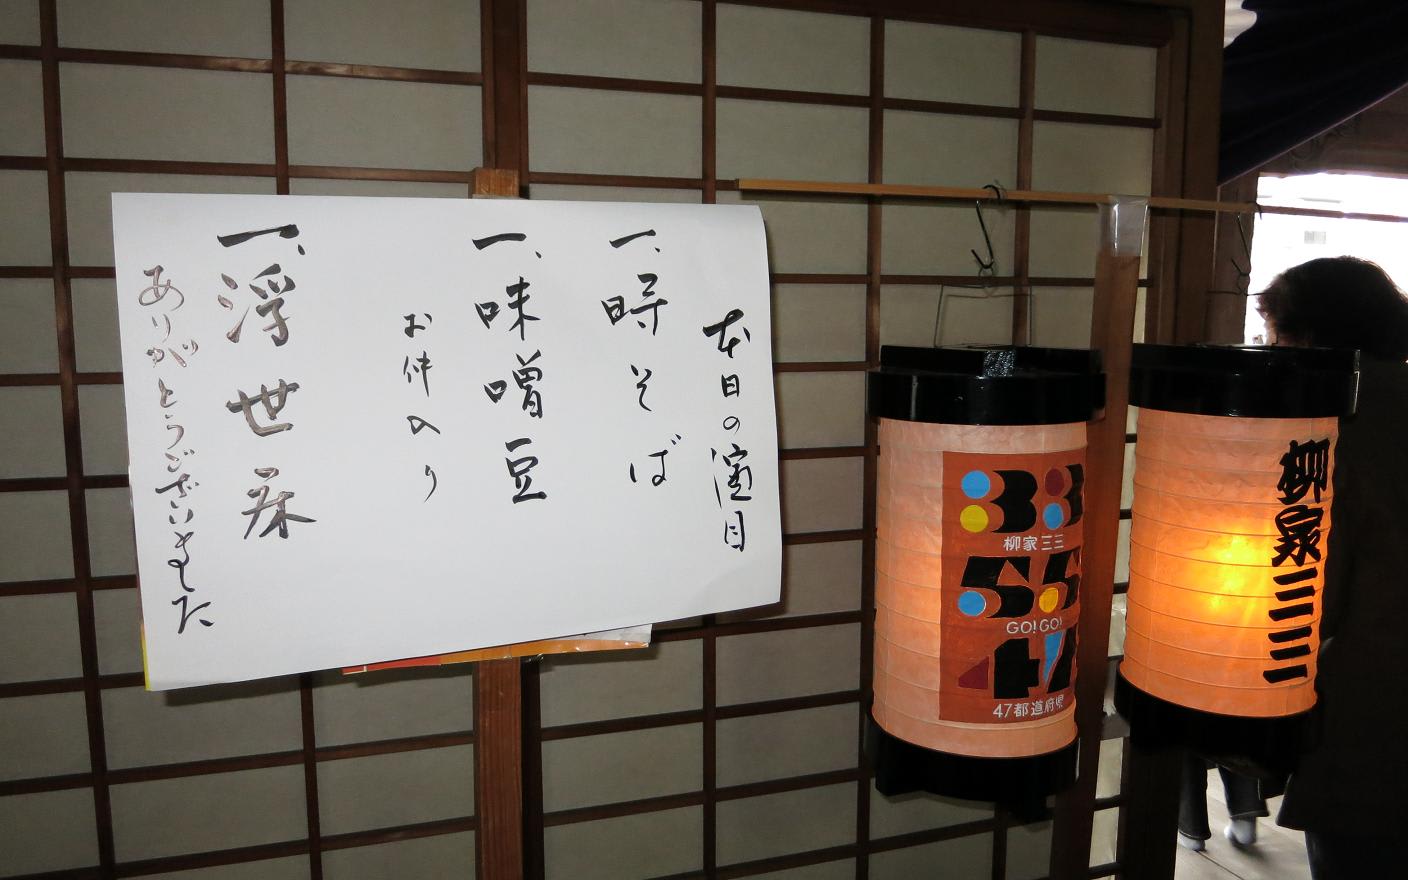 本日の演目
一、時そば
一、味噌豆
お仲入り
一、浮世床
ありがとうございました
33
柳家三三
55
GO!GO!
47
47都道府県
柳家三三